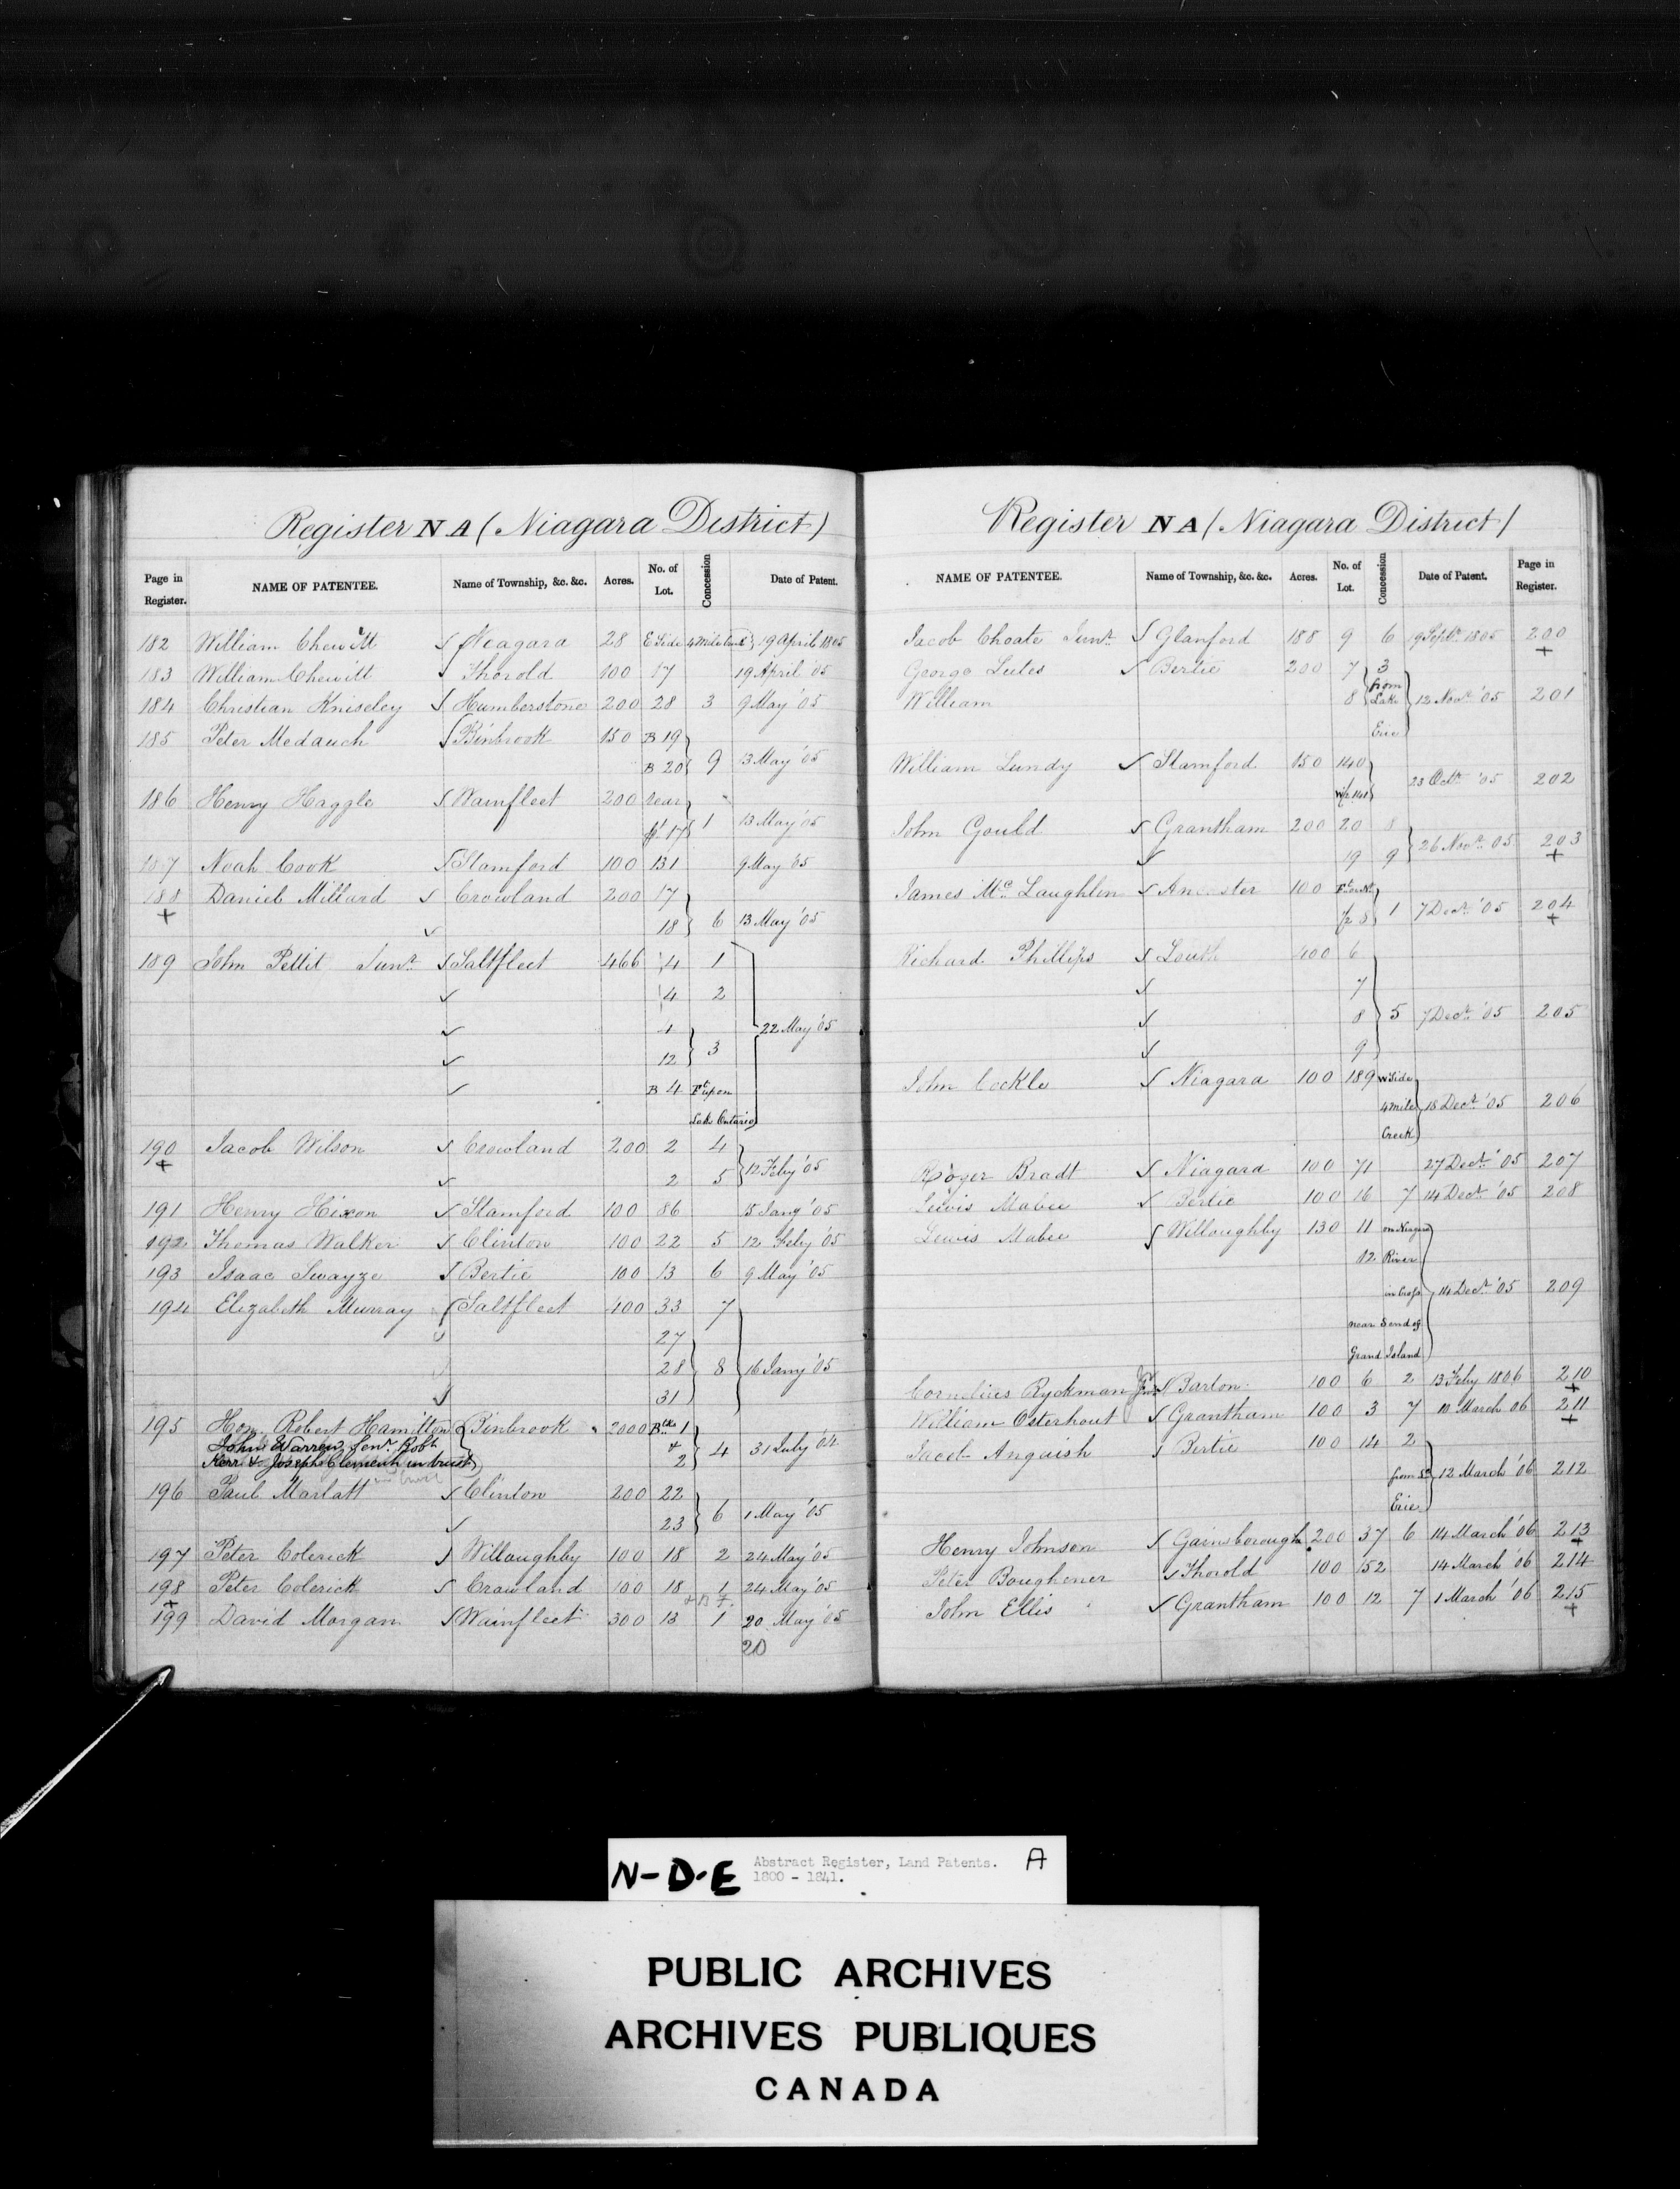 Register N A (Niagara District)
Page in Register. NAME OF PATENTEE. Name of Township, &c. &c. Acres. No. of Lot. Concession Date of Patent.
182 William Chewitt Niagara 28 E Side 4 Mile Creek 19 April 1805
183 William Chewitt Thorold 100 17 19 April '05
184 Christian Kniseley Humberstone 200 28 3 9 May '05
185 Peter Medauch Binbrook 150 B 19
B 20 9 13 May '05
186 Henry Haggle Wainfleet 200 rear
pt 17 1 13 May '05
187 Noah Cook Stamford 100 131 9 May '05
188 Daniel Millard Crowland 200 17
+ 18 6 13 May '05
189 John Pettit Junr. Saltfleet 466 4 1
4 2
4 22 May '05
12 3
B 4 Ft upon
Lake Ontario
190 Jacob Wilson Crowland 200 2 4
+ 2 5 12 Feby '05
191 Henry Hixon Stamford 100 86 15 Jany '05
192 Thomas Walker Clinton 100 22 5 12 Feby '05
193 Isaac Swayze Bertie 100 13 6 9 May '05
194 Elizabeth Murray Saltfleet 400 33 7
27
28 8 16 Jany '05
31
195 Hon. Robert Hamilton Binbrook 2000 Blk 1
John Warren Senr. Robt. & 4 31 July '04
Kerr & Joseph Clement in trust 2
in trust
196 Paul Marlatt Clinton 200 22
23 6 1 May '05
197 Peter Colerick Willoughby 100 18 2 24 May '05
198 Peter Colerick Crowland 100 18 1 24 May '05
+ & B F.
199 David Morgan Wainfleet 300 13 1 20 May '05
20
Register N A (Niagara District)
NAME OF PATENTEE. Name of Township, &c. &c. Acres. No. of Lot. Concession Date of Patent. Page in Register.
Jacob Choate Junr. Glanford 188 9 6 19 Septr. 1805 200
+
George Lutes Bertie 200 7 3
William 8 from Lake 12 Novr. '05 201
Erie
William Lundy Stamford 150 140
W½ 141 23 Octr. '05 202
John Gould Grantham 200 20 8
19 9 26 Novr. 05 203
+
James McLaughlin Ancaster 100
½ 5 1 7 Decr. '05 204
+
Richard Phillips Louth 400 6
7
8 5 7 Decr. '05 205
9
John Cockle Niagara 100 189 W Side
4 Mile 18 Decr. '05 206
Creek
Roger Bradt Niagara 100 71 27 Decr. '05 207
Lewis Mabee Bertie 100 16 7 14 Decr. '05 208
Lewis Mabee Willoughby 130 11 on Niagara
12 River
14 Decr. '05 209
near S end of
Grand Island
Cornelius Ryckman Junr. Barton 100 6 2 13 Feby 1806 210
+
William Osterhout Grantham 100 3 7 10 March 06 211
+
Jacob Anguish Bertie 100 14 2
from L. 12 March '06 212
Erie
Henry Johnson Gainsborough 200 37 6 14 March '06 213
+
Peter Boughener Thorold 100 152 14 March '06 214
John Ellis Grantham 100 12 7 1 March '06 215
+
N-D-E Abstract Register, Land Patents. A
1800 - 1841.
PUBLIC ARCHIVES
ARCHIVES PUBLIQUES
CANADA